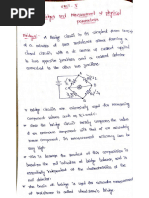 UNIT-5
Bridges and Measurement of physical
parameters
Bridges: A bridge circuit in its simplest form consists
of a network of four resistance arms forming a
closed circuit, with a dc source of current applied
to two opposite junctions and a current detector
connected to the other two junctions.
Bridge circuits are extensively used for measuring
component values such as R, L and C.
Since the bridge circuit merely compares the value of
an unknown component with that of an accurately
known component, its measurement
This is because the readout of this comparison is
based on the null indication at bridge balance, and is
essentially independent of the characteristics of the
null detector.
The basic dc bridge is used for accurate measurement
of resistance is called Wheatstone's bridge.